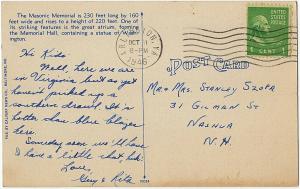 The Masonic Memorial is 230 feet long by 160
feet wide and rises to a height of 220 feet. One of
its striking features is the great atrium, forming
the Memorial Hall, containing a statue of Wash-
ington.
Hi Kids
Well, here we are
in Virginia but as yet
haven't picked up a
southern drawl. It's
hotter than blue blazes
here.
Someday soon we'll have
to have a little chat,
Love,
Guy & Rita
POST CARD
OCT 1
8-PM
1946
1 CENT 1
Mr & Mrs. Stanley Szopa
31 Gilman St
Nashua
N.H.